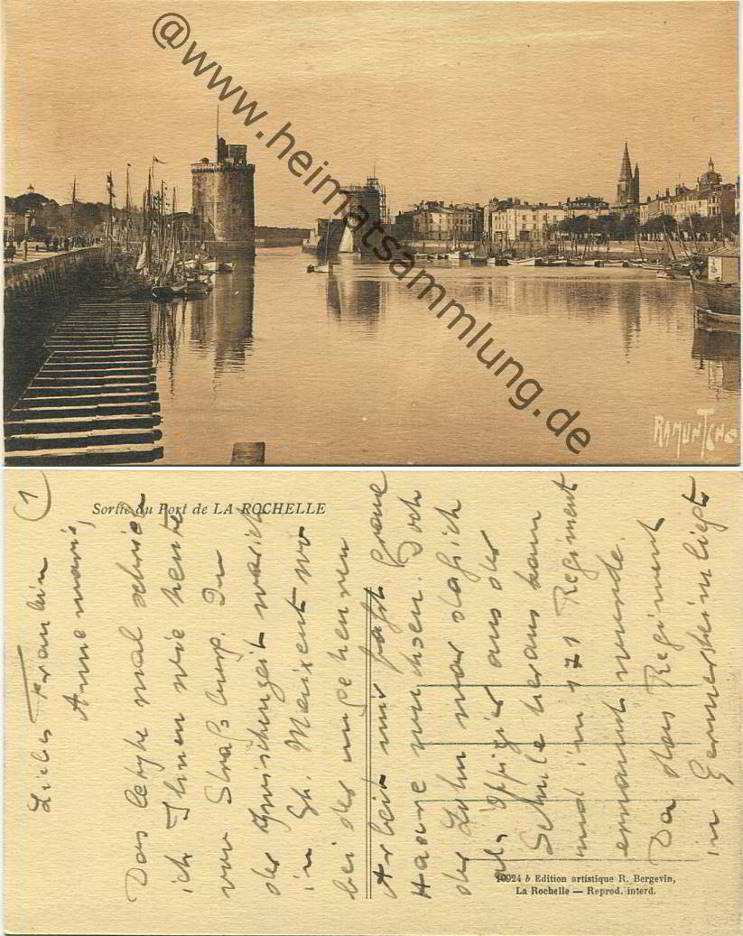 @www.heimatsammlung.de
RAMUNTCHO
Sortie du Port de LA ROCHELLE
1)
Liebes Fräulein
Annemarie,
Das letzte mal schrieb
ich Ihnen wie heute
von Straßburg. In
der Zwischenzeit war ich
in St. Maixent wo
bei der ungeheuren
Arbeit mir fast graue
Haare wuchsen. Doch
der Lohn war daß ich
als Offizier aus der
Schule heraus kam
und im 171 Regiment
ernannt wurde.
Da das Regiment
in Germersheim liegt
10924 b Edition artistique R. Bergevin,
La Rochelle — Reprod. interd.